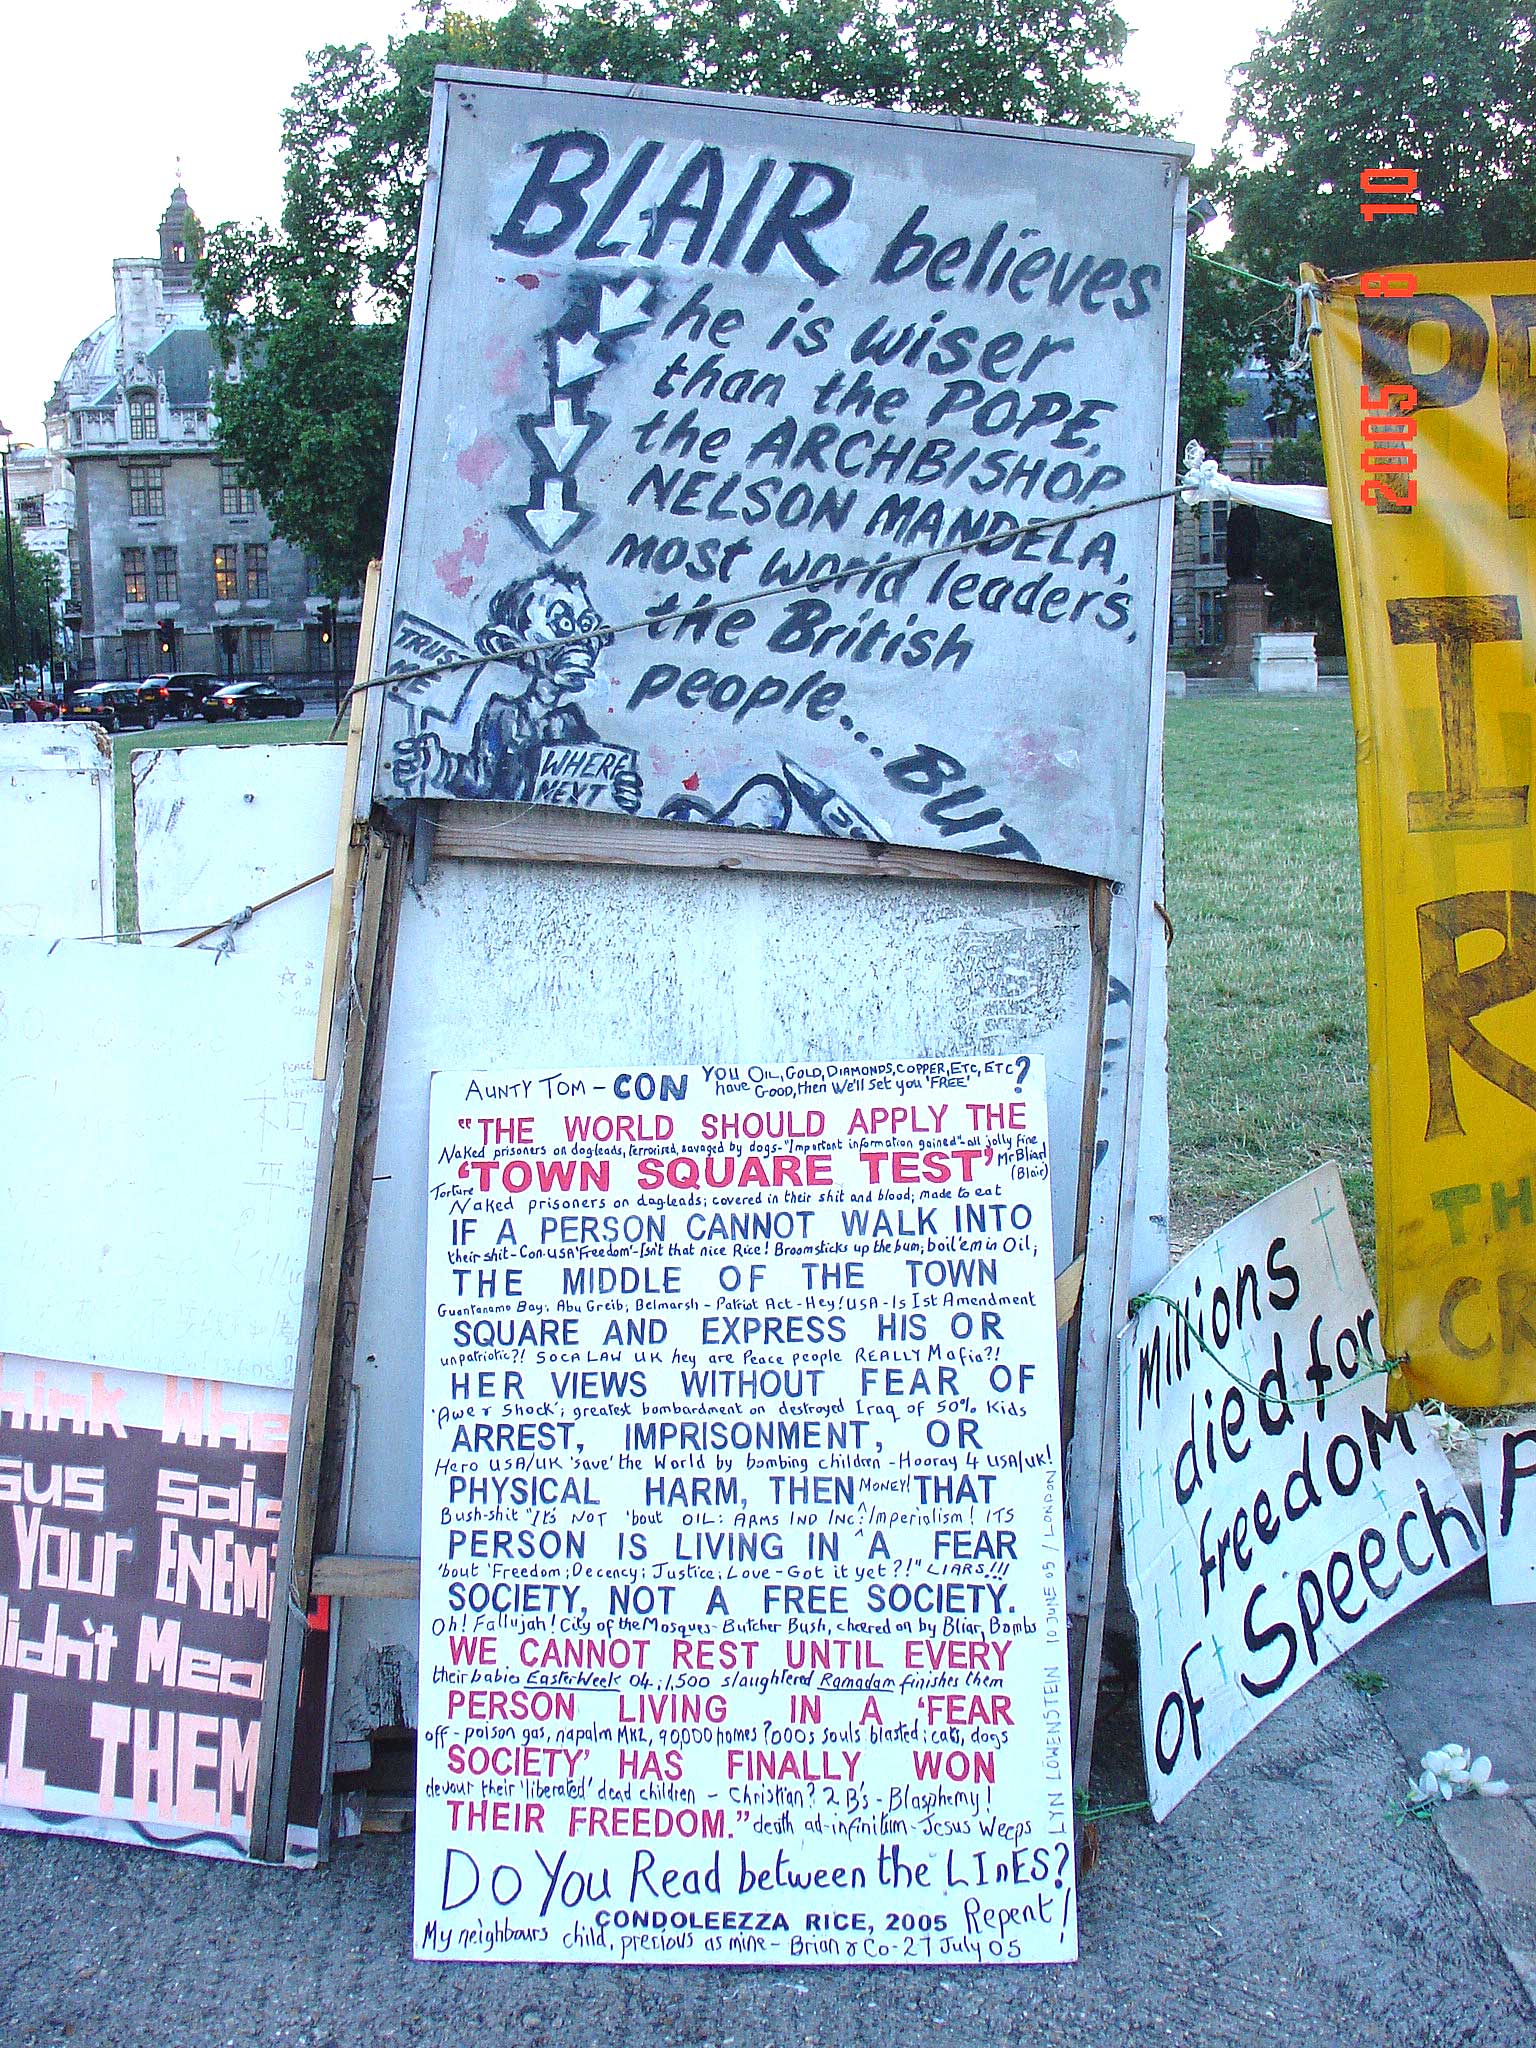 BLAIR believes
he is wiser
than the POPE,
the ARCHBISHOP
NELSON MANDELA,
most world leaders,
the British
people... BUT
TRUST
ME
WHERE
NEXT
2005 8 10
AUNTY TOM - CON YOU OIL, GOLD, DIAMONDS, COPPER, ETC, ETC ?
have GOOD, then We'll set you 'FREE'
"THE WORLD SHOULD APPLY THE
Naked prisoners on dogleads, terrorised, savaged by dogs - "Important information gained" - all jolly fine
'TOWN SQUARE TEST' Mr Bliar!
(Blair)
Torture
Naked prisoners on dogleads; covered in their shit and blood; made to eat
IF A PERSON CANNOT WALK INTO
their shit - Con-USA 'Freedom' - Isn't that nice Rice! Broomsticks up the bum; boil 'em in Oil;
THE MIDDLE OF THE TOWN
Guantanamo Bay; Abu Greib; Belmarsh - Patriot Act - Hey! USA - Is 1st Amendment
SQUARE AND EXPRESS HIS OR
unpatriotic?! SOCA LAW UK hey are Peace people REALLY Mafia?!
HER VIEWS WITHOUT FEAR OF
'Awe & Shock'; greatest bombardment on destroyed Iraq of 50% Kids
ARREST, IMPRISONMENT, OR
Hero USA/UK 'save' the World by bombing children - Hooray 4 USA/UK!
PHYSICAL HARM, THEN MONEY! THAT
Bush-shit "It's NOT 'bout OIL: ARMS IND INC: Imperialism! ITS
PERSON IS LIVING IN ^ A FEAR
'bout 'Freedom; Decency; Justice; Love - Got it yet?!" LIARS!!!
SOCIETY, NOT A FREE SOCIETY.
Oh! Fallujah! City of the Mosques - Butcher Bush, cheered on by Bliar, Bombs
WE CANNOT REST UNTIL EVERY
their babies Easter Week 04; 1,500 slaughtered Ramadam finishes them
PERSON LIVING IN A 'FEAR
off - poison gas, napalm MK2, 90,000 homes ?000s souls blasted; cats, dogs
SOCIETY' HAS FINALLY WON
devour their 'liberated' dead children - Christian? 2 B's - Blasphemy!
THEIR FREEDOM." death ad-infinitum - Jesus Weeps
Do You Read between the LInES?
CONDOLEEZZA RICE, 2005 Repent!
My neighbours child, precious as mine - Brian & Co - 27 July 05
LYN LÖWENSTEIN 10 JUNE 05 / LONDON
Millions
died for
freedom
of Speech
I
R
TH
CR
Whe
sus said
Your ENEM
didn't Mea
L THEM